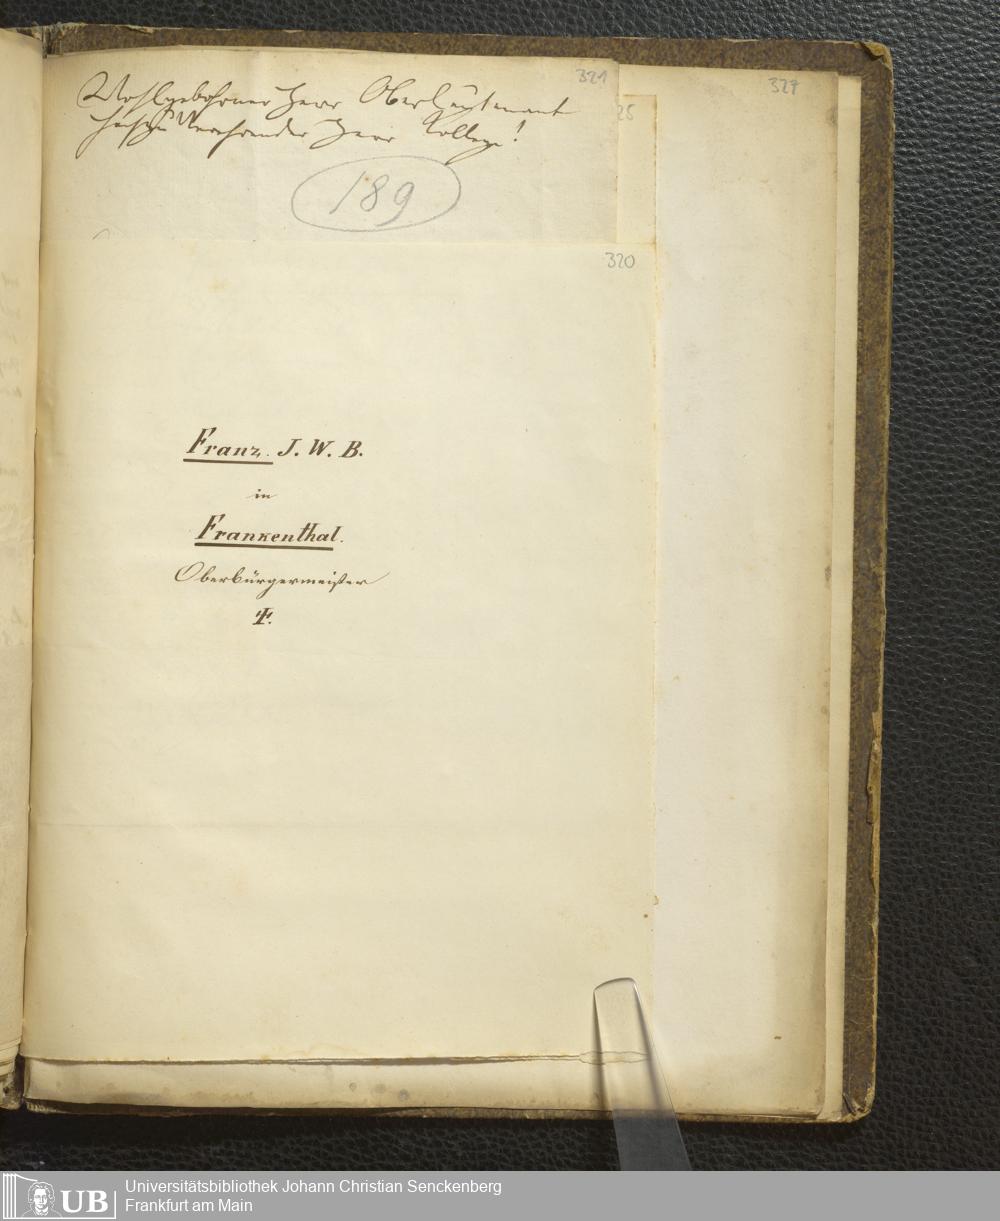 321
327
Wohlgebohrner Herr Oberleutenant
Verehrender Herr Kollege!
25
189
320
Franz. J. W. B.
in
Frankenthal.
Oberbürgermeister
UB
Universitätsbibliothek Johann Christian Senckenberg
Frankfurt am Main